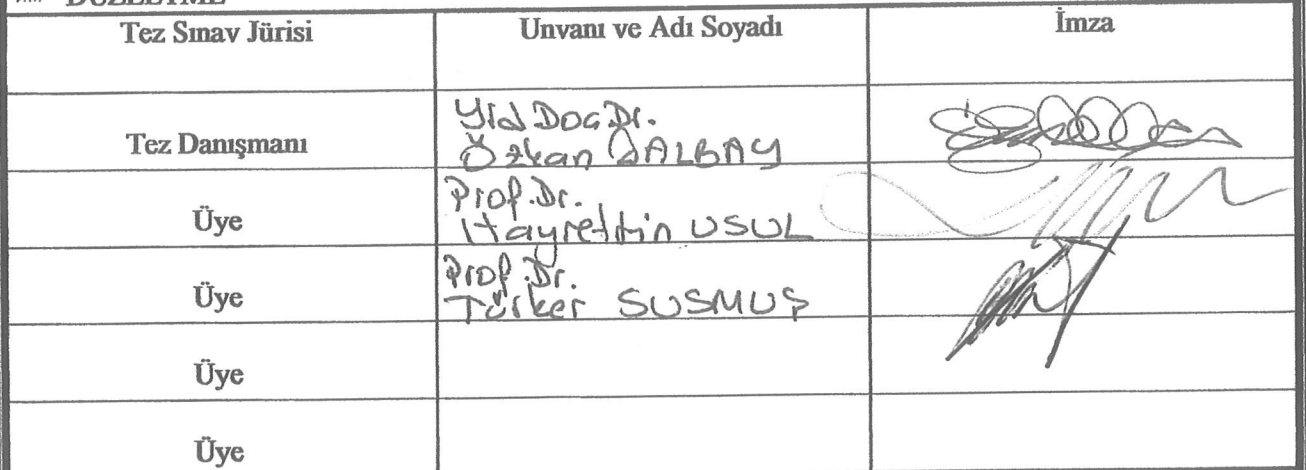 DÜZELTME
Tez Sınav Jürisi Unvanı ve Adı Soyadı İmza
Tez Danışmanı Yrd Doç Dr.
Özkan SALBAY
Üye Prof.Dr.
Hayrettin USUL
Üye Prof.Dr.
Türker SUSMUŞ
Üye
Üye